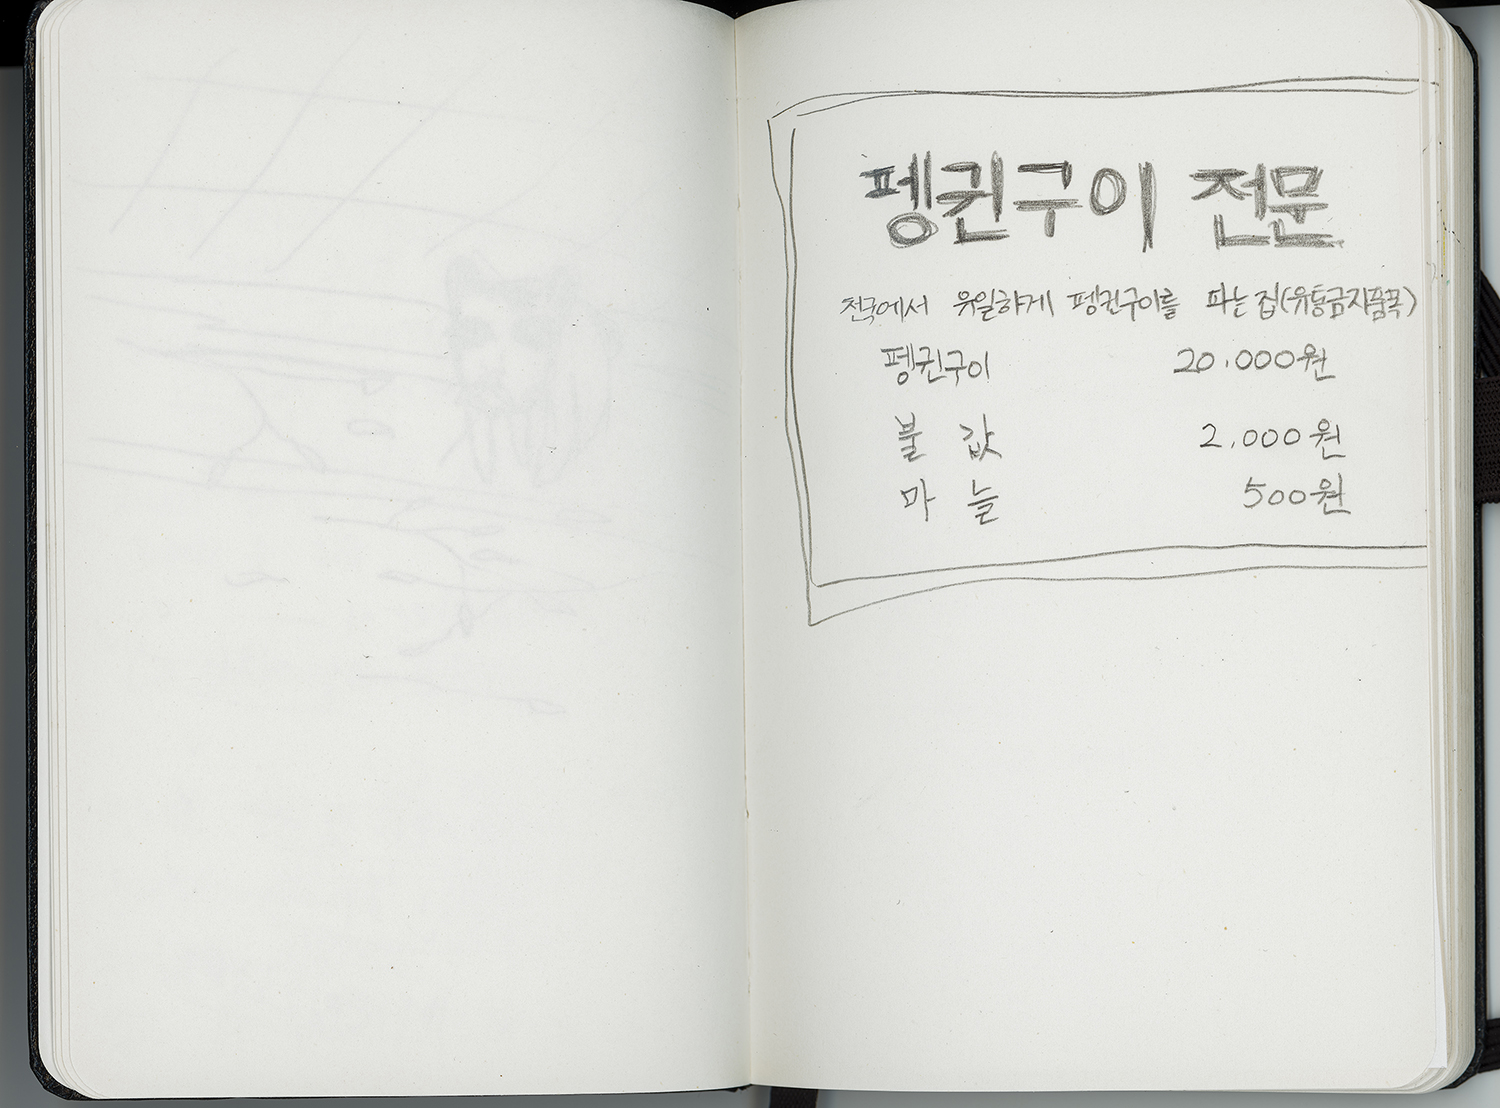 펭귄구이 전문
전국에서 유일하게 펭귄구이를 파는 집(유통금지품목)
펭귄구이 20.000원
불 값 2.000원
마 늘 500원